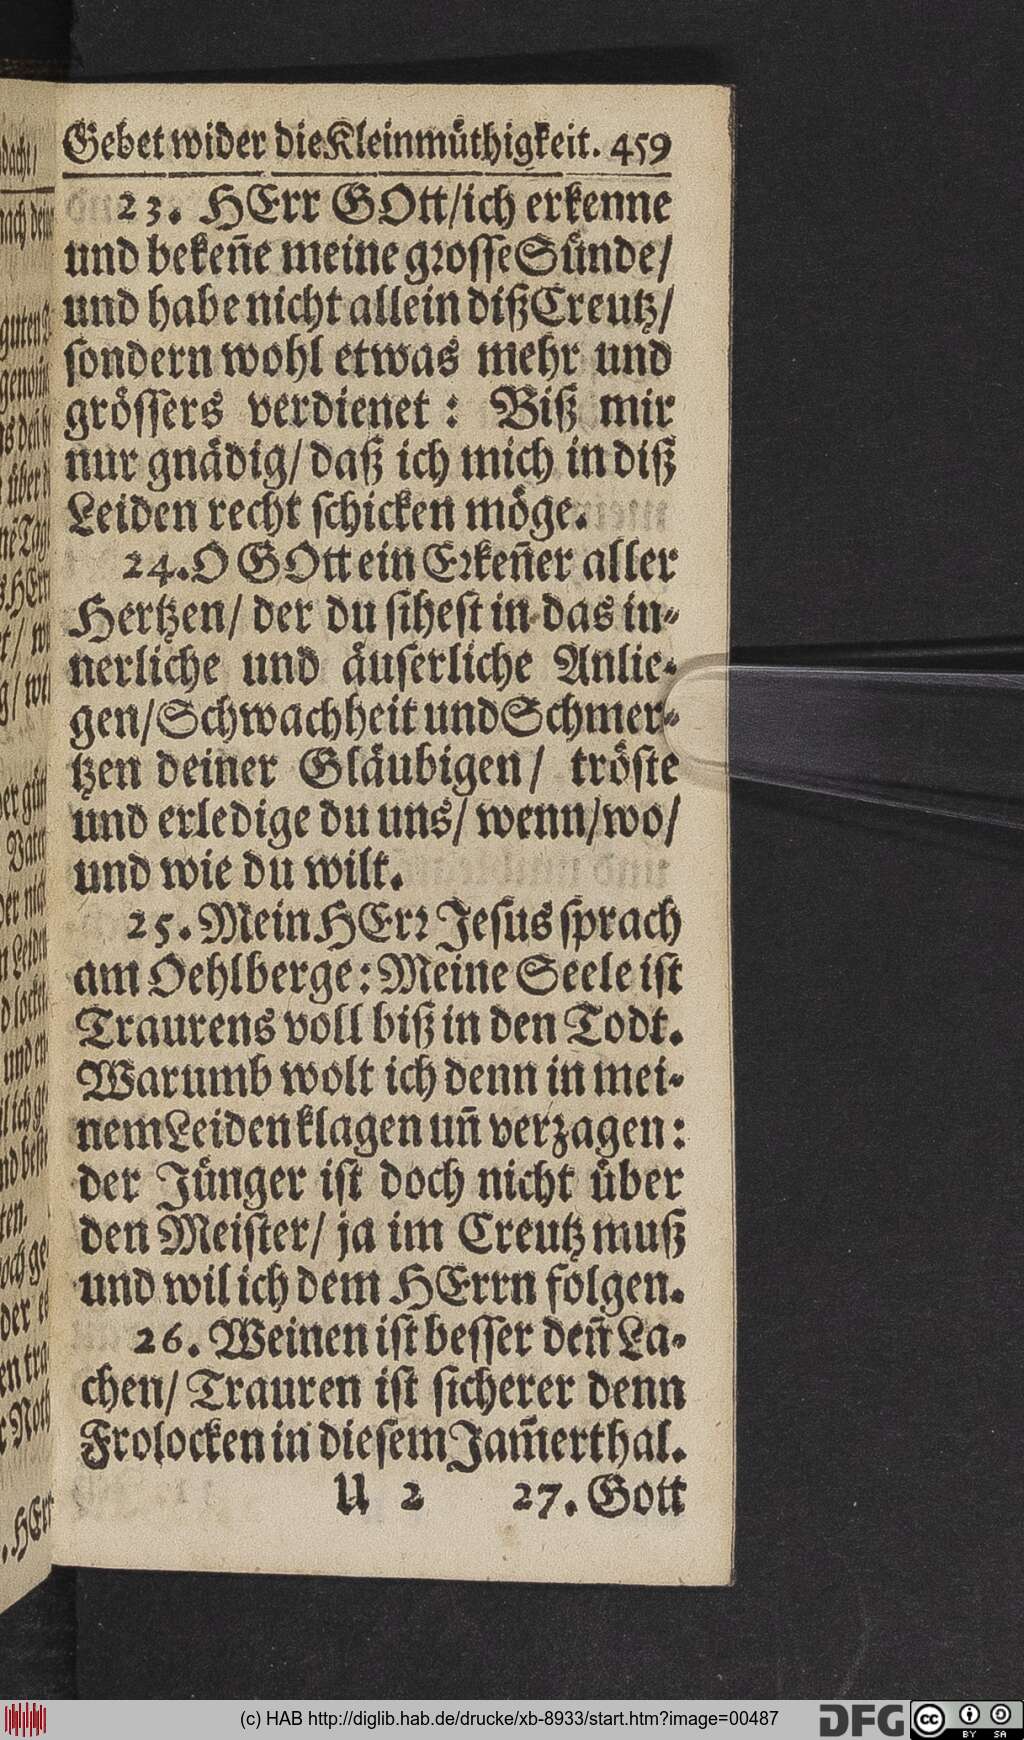 Gebet wider die Kleinmüthigkeit. 459
23. HErr GOtt/ich erkenne
und bekeñe meine grosse Sünde/
und habe nicht allein diß Creutz/
sondern wohl etwas mehr und
grössers verdienet: Biß mir
nur gnädig/ daß ich mich in diß
Leiden recht schicken möge.
24. O GOtt ein Erkeñer aller
Hertzen/ der du sihest in das in-
nerliche und äuserliche Anlie-
gen/Schwachheit und Schmer-
tzen deiner Gläubigen/ tröste
und erledige du uns/ wenn/wo/
und wie du wilt.
25. Mein HErr Jesus sprach
am Oehlberge: Meine Seele ist
Traurens voll biß in den Todt.
Warumb wolt ich denn in mei-
nem Leiden klagen uñ verzagen:
der Jünger ist doch nicht über
den Meister/ ja im Creutz muß
und wil ich dem HErrn folgen.
26. Weinen ist besser deñ La-
chen/ Trauren ist sicherer denn
Frolocken in diesem Jam̃erthal.
U 2 27. Gott
(c) HAB http://diglib.hab.de/drucke/xb-8933/start.htm?image=00487
DFG
cc BY SA